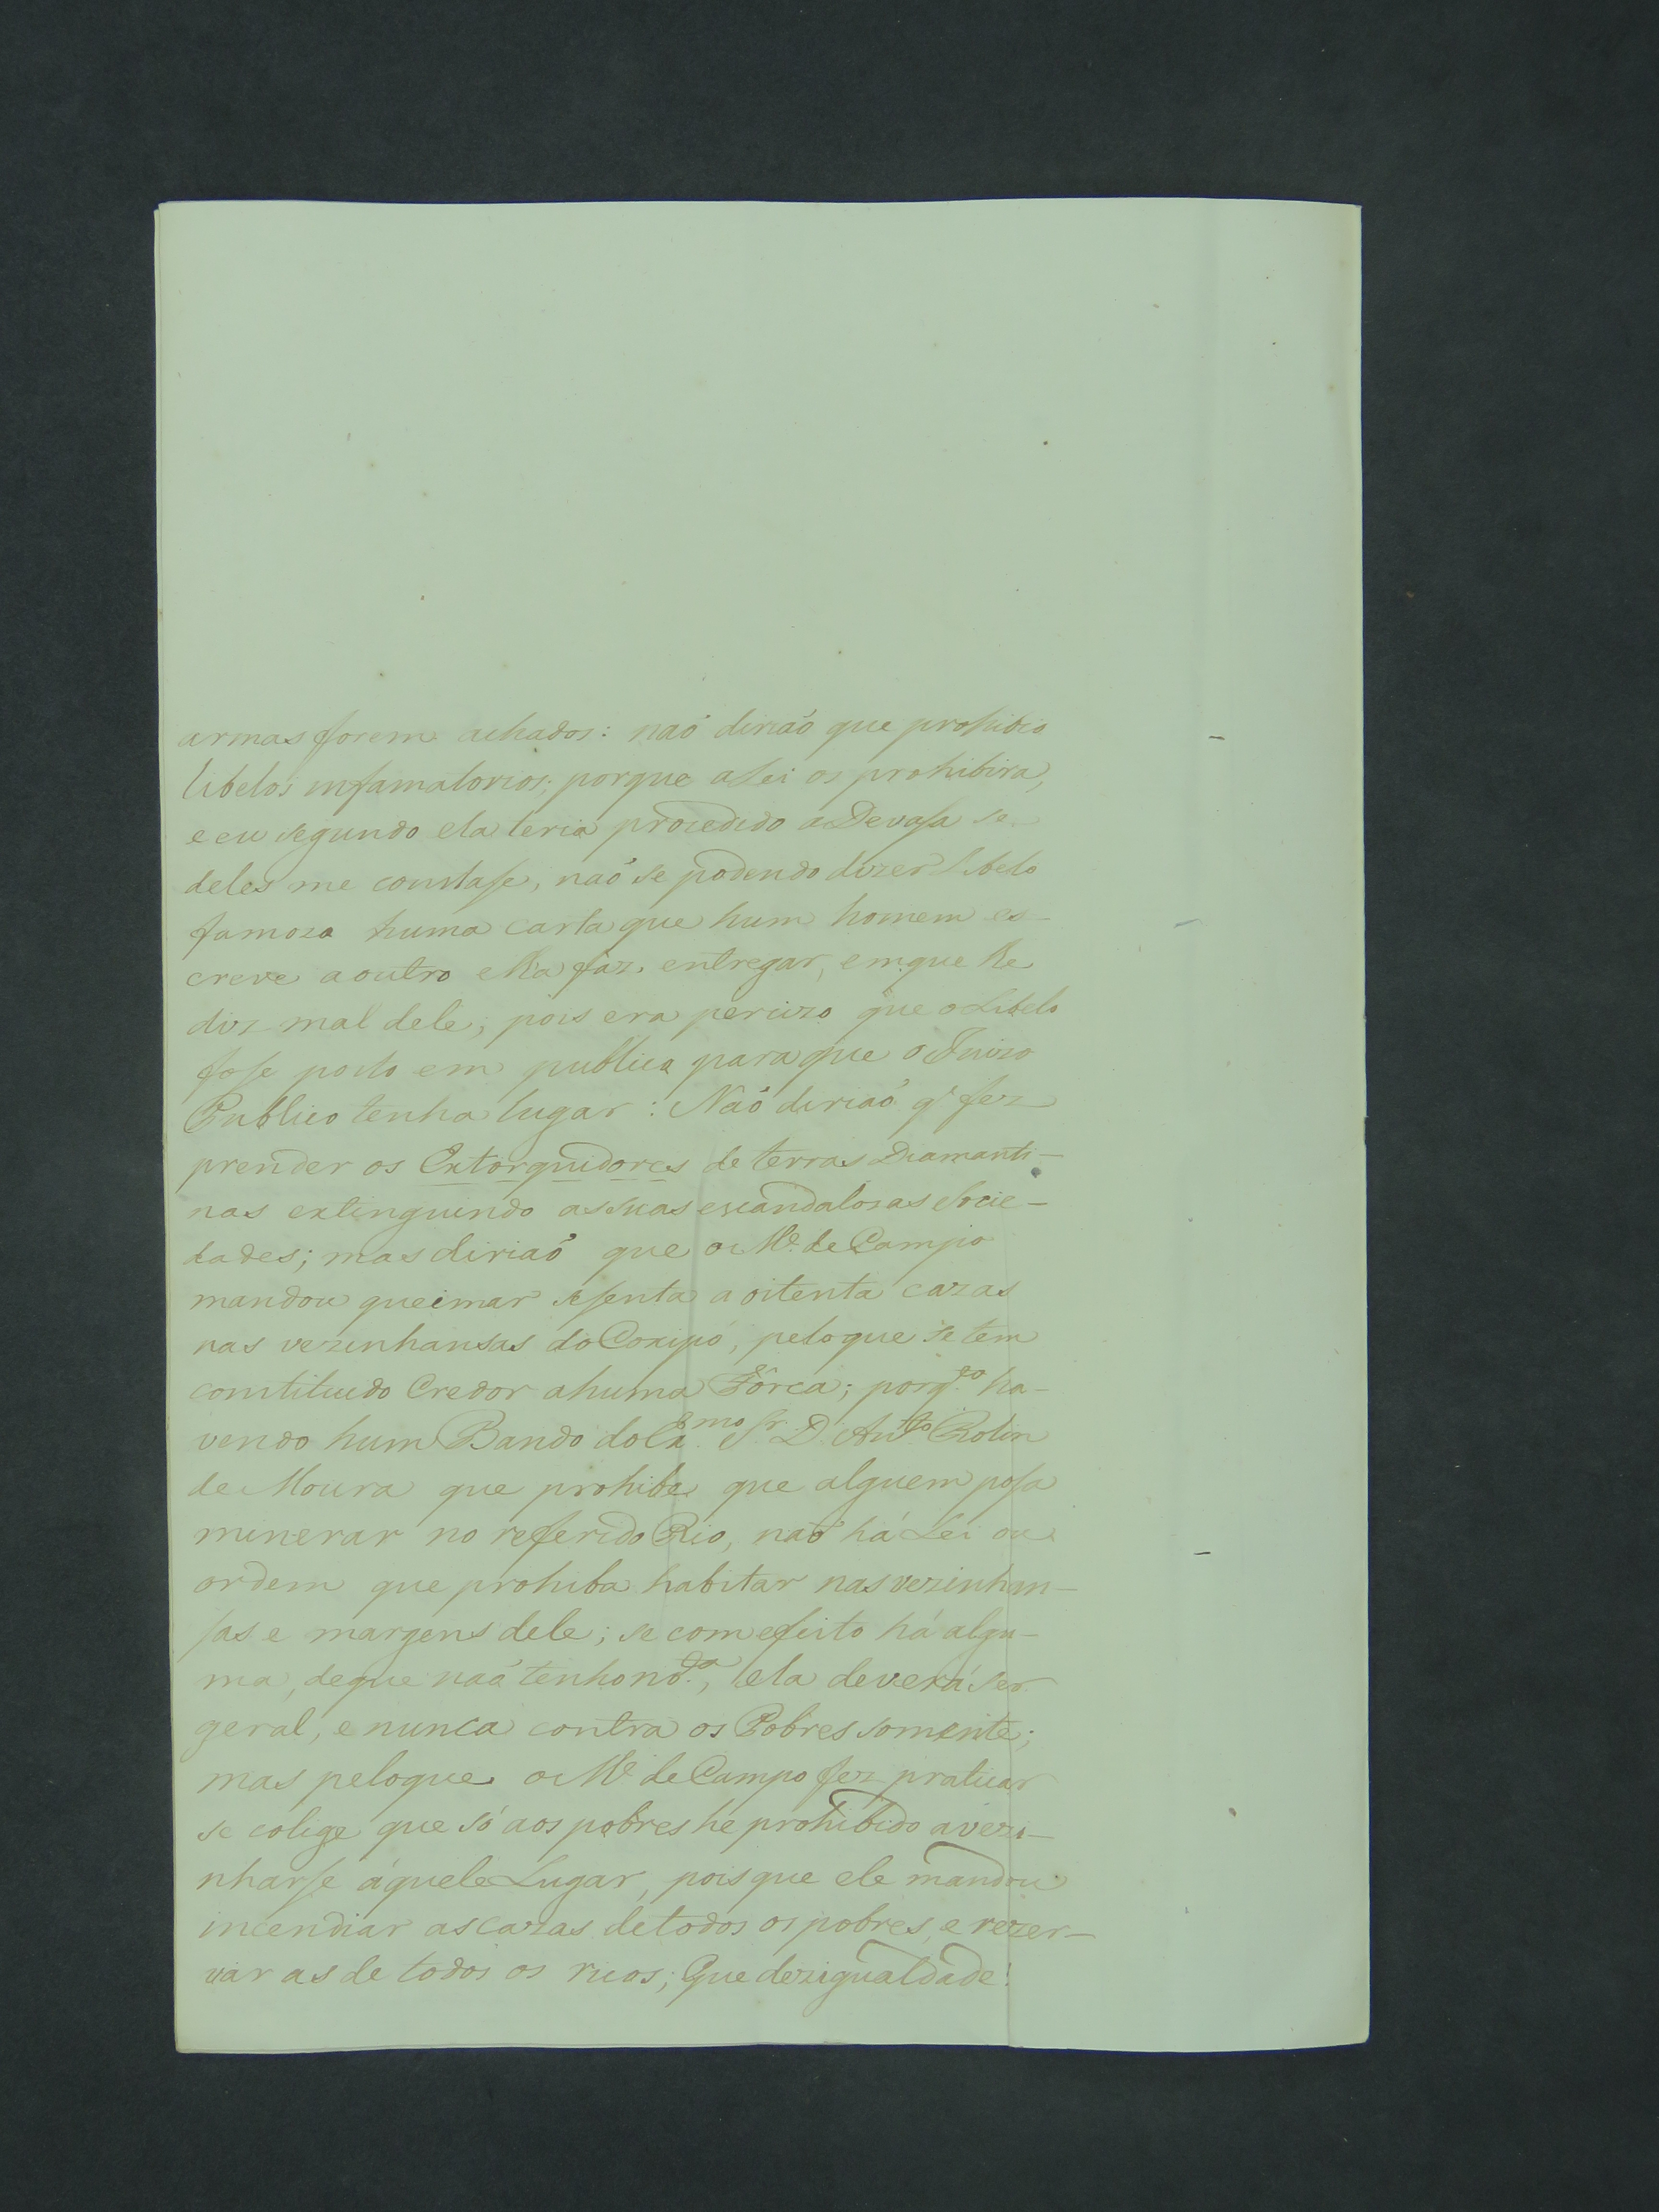 armas forem achados: naõ diriaõ que prohibio
libelos infamatorios; porque a Lei os prohibira,
e eu segundo ela teria procedido a Devasa se
deles me constase, naõ se podendo dizer Libelo
famozo huma carta que hum homem es-
creve a outro e lha faz entregar, em que lhe
diz mal dele; pois era percizo que o Libelo
fose posto em publico para que o Juizo
Publico tenha lugar: Naõ diriaõ q' fez
prender os Extorquidores de terras Diamanti-
nas extinguindo as suas escandalozas Socie-
dades; mas diriaõ que o Me. de Campo
mandou queimar sesenta a oitenta cazas
nas vezinhansas do Coxipó, pelo que se tem
constituido Credor a huma Fôrca; porq.to ha-
vendo hum Bando do Ex.mo Sr. D. Anto. Rolin
de Moura que prohibe que alguem posa
minerar no referido Rio, naõ há Lei ou
ordem que prohiba habitar nas vezinhan-
sas e margens dele; se com efeito há algu-
ma, de que naõ tenho no.ca, ela deverá ser
geral, e nunca contra os Pobres somente;
mas pelo que o Me. de Campo fez praticar
se colige que só aos pobres he prohibido avezi-
nharse áquele Lugar, pois que ele mandou
incendiar as cazas de todos os pobres, e rezer-
var as de todos os ricos; Que dezigualdade!